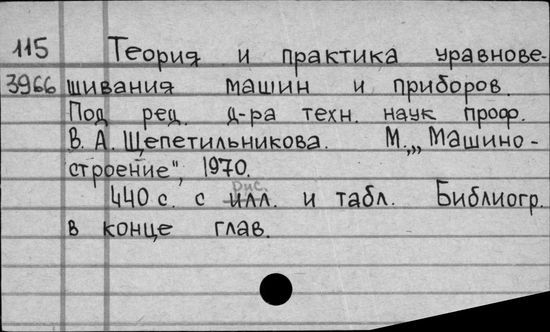 115 Теория и практика уравнове-
3966 шивания машин и приборов.
Под ред. д-ра техн. наук проф.
В. А. Щепетильникова. М., „Машино-
строение", 1970.
рис.
440 с. с илл. и табл. Библиогр.
в конце глав.